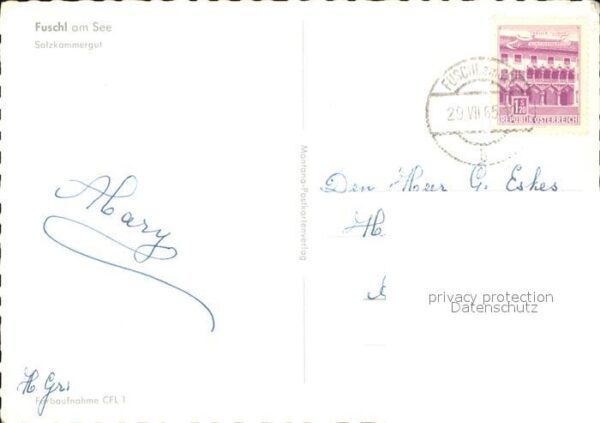 Fuschl am See
Salzkammergut
FUSCHL AM
29.VII.65
1 S 20
REPUBLIK ÖSTERREICH
Montana-Postkartenverlag
Den Heer G. Eskes
H
Mary
privacy protection
Datenschutz
H. Gr.
Farbaufnahme CFL 1